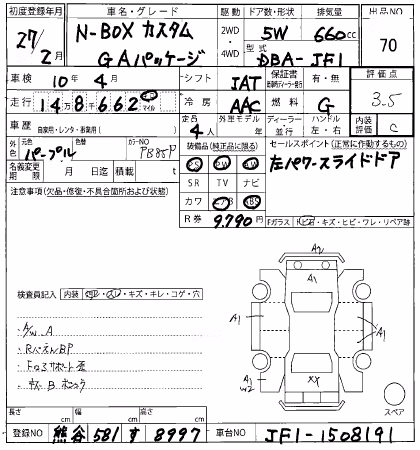 初度登録年月 車名・グレード 駆動 ドア数・形状 排気量 出品NO
27/2月 N-BOX カスタム GAパッケージ 2WD・4WD 5W 660cc 70
型式 DBA-JF1
車検 10年4月 シフト IAT 保証書 有・無 評価点
走行 148千662 マイル 冷房 AAC 燃料 G 3.5
車歴 自家用・レンタ・ 定員 4人 外車モデル 年 ディーラー 並行 ハンドル 左・右 内装評価 C
外色 元色 パープル 色替 カラーNO PB85P 装備品(純正品に限る) セールスポイント(正常に作動するもの)
PS PW AW 左パワースライドドア
名義変更期限 月 日迄 積載 t SR TV ナビ
注意事項(欠品・修復・不具合箇所および状態) カワ エアB ABS
R券 9,790円 Fガラス トビ石・キズ・ヒビ・ワレ・リペア跡
A2
A1
検査員記入 内装 ・キズ・キレ・コゲ・穴
A1 A1
A/W A
BP
Fコアサポート歪
B ボンネット
XX
A1
W2
スペア
長さ cm 幅 cm 高さ cm
登録NO 熊谷 581 す 8997 車台NO JF1-1508191